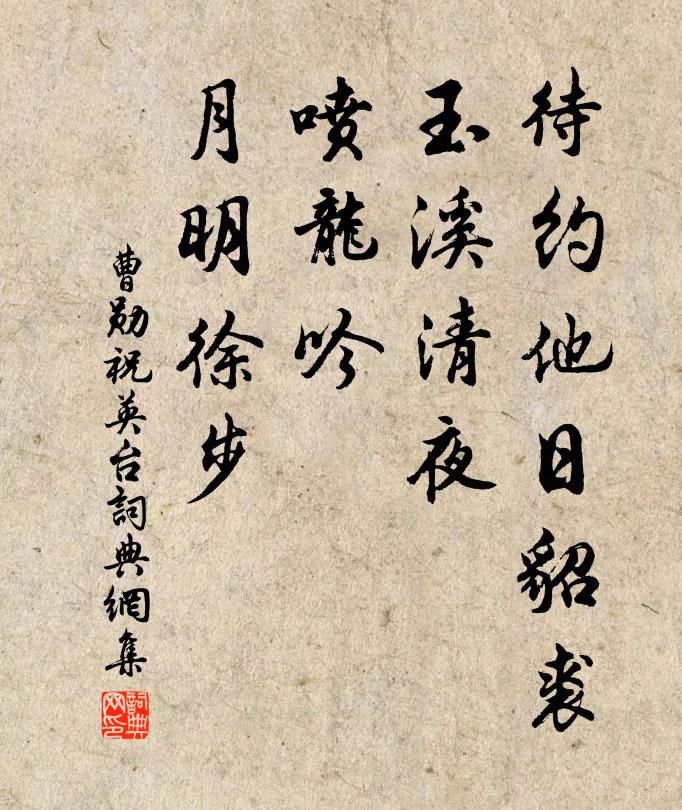 待约他日貂裘
玉溪清夜
喷龍吟
月明徐步
曹勋祝英台詞典網集
詞典网印